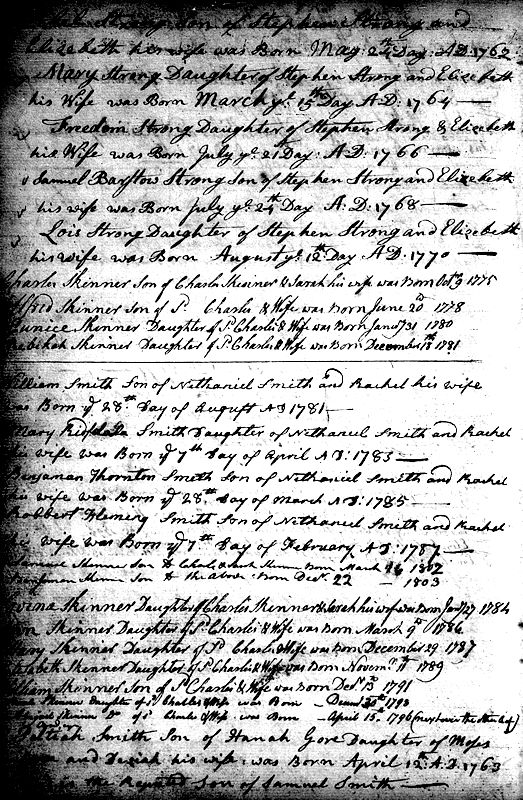 Strong Son of Stephen Strong and
Elizabeth his wife was Born May 24th Day: A:D: 1762
Mary Strong Daughter of Stephen Strong and Elizabeth
his Wife was Born March ye 15th Day A.D: 1764
Freedom Strong Daughter of Stephen Strong & Elizabeth
his Wife was Born July ye 21 Day: A:D: 1766
Samuel Barstow Strong Son of Stephen Strong and Elizabeth
his wife was Born July ye 24th Day A:D: 1768
Lois Strong Daughter of Stephen Strong and Elizabeth
his wife was Born August ye 12th Day A:D: 1770
Charles Skinner Son of Charles Skinner & Sarah his wife was Born Octor 9 1775
Alfred Skinner Son of Sd Charles & Wife was Born June 20th 1778
Eunice Skinner Daughter of Sd Charles & Wife was Born Janry 31 1780
Rebekah Skinner Daughter of Sd Charles & Wife was Born December 18th 1781
William Smith Son of Nathaniel Smith and Rachel his wife
was Born ye 28th Day of August AD 1781
Mary Smith Daughter of Nathaniel Smith and Rachel
his wife was Born ye 7th Day of April A:D: 1783
Benjaman Thornton Smith Son of Nathaniel Smith and Rachel
his wife was Born ye 28th Day of March A:D: 1785
Robbert Flemeng Smith Son of Nathaniel Smith and Rachel
his wife was Born ye 7th Day of February A:D: 1787
Skinner Son to Charles & Sarah Skinner Born March 16 1802
Son to the above: Born Decr. 22 1803
Skinner Daughter of Charles Skinner & Sarah his wife was Born Janry 27 1784
Skinner Daughter of Sd Charles & Wife was Born March 9th 1786
Skinner Daughter of Sd Charles & Wife was Born December 29 1787
Elizabeth Skinner Daughter of Sd Charles & Wife was Born Novemr 11th 1789
William Skinner Son of Sd Charles & Wife was Born Decr 13th 1791
Skinner Daughter of Sd Charles & Wife was Born Decemr 20th 1793
Skinner of Sd Charles & Wife was Born April 15. 1796 (
Smith Son of Hanah Gore Daughter of Moses
and Desiah his wife: was Born April 12th A:D. 1763
the Reputed Son of Samuel Smith